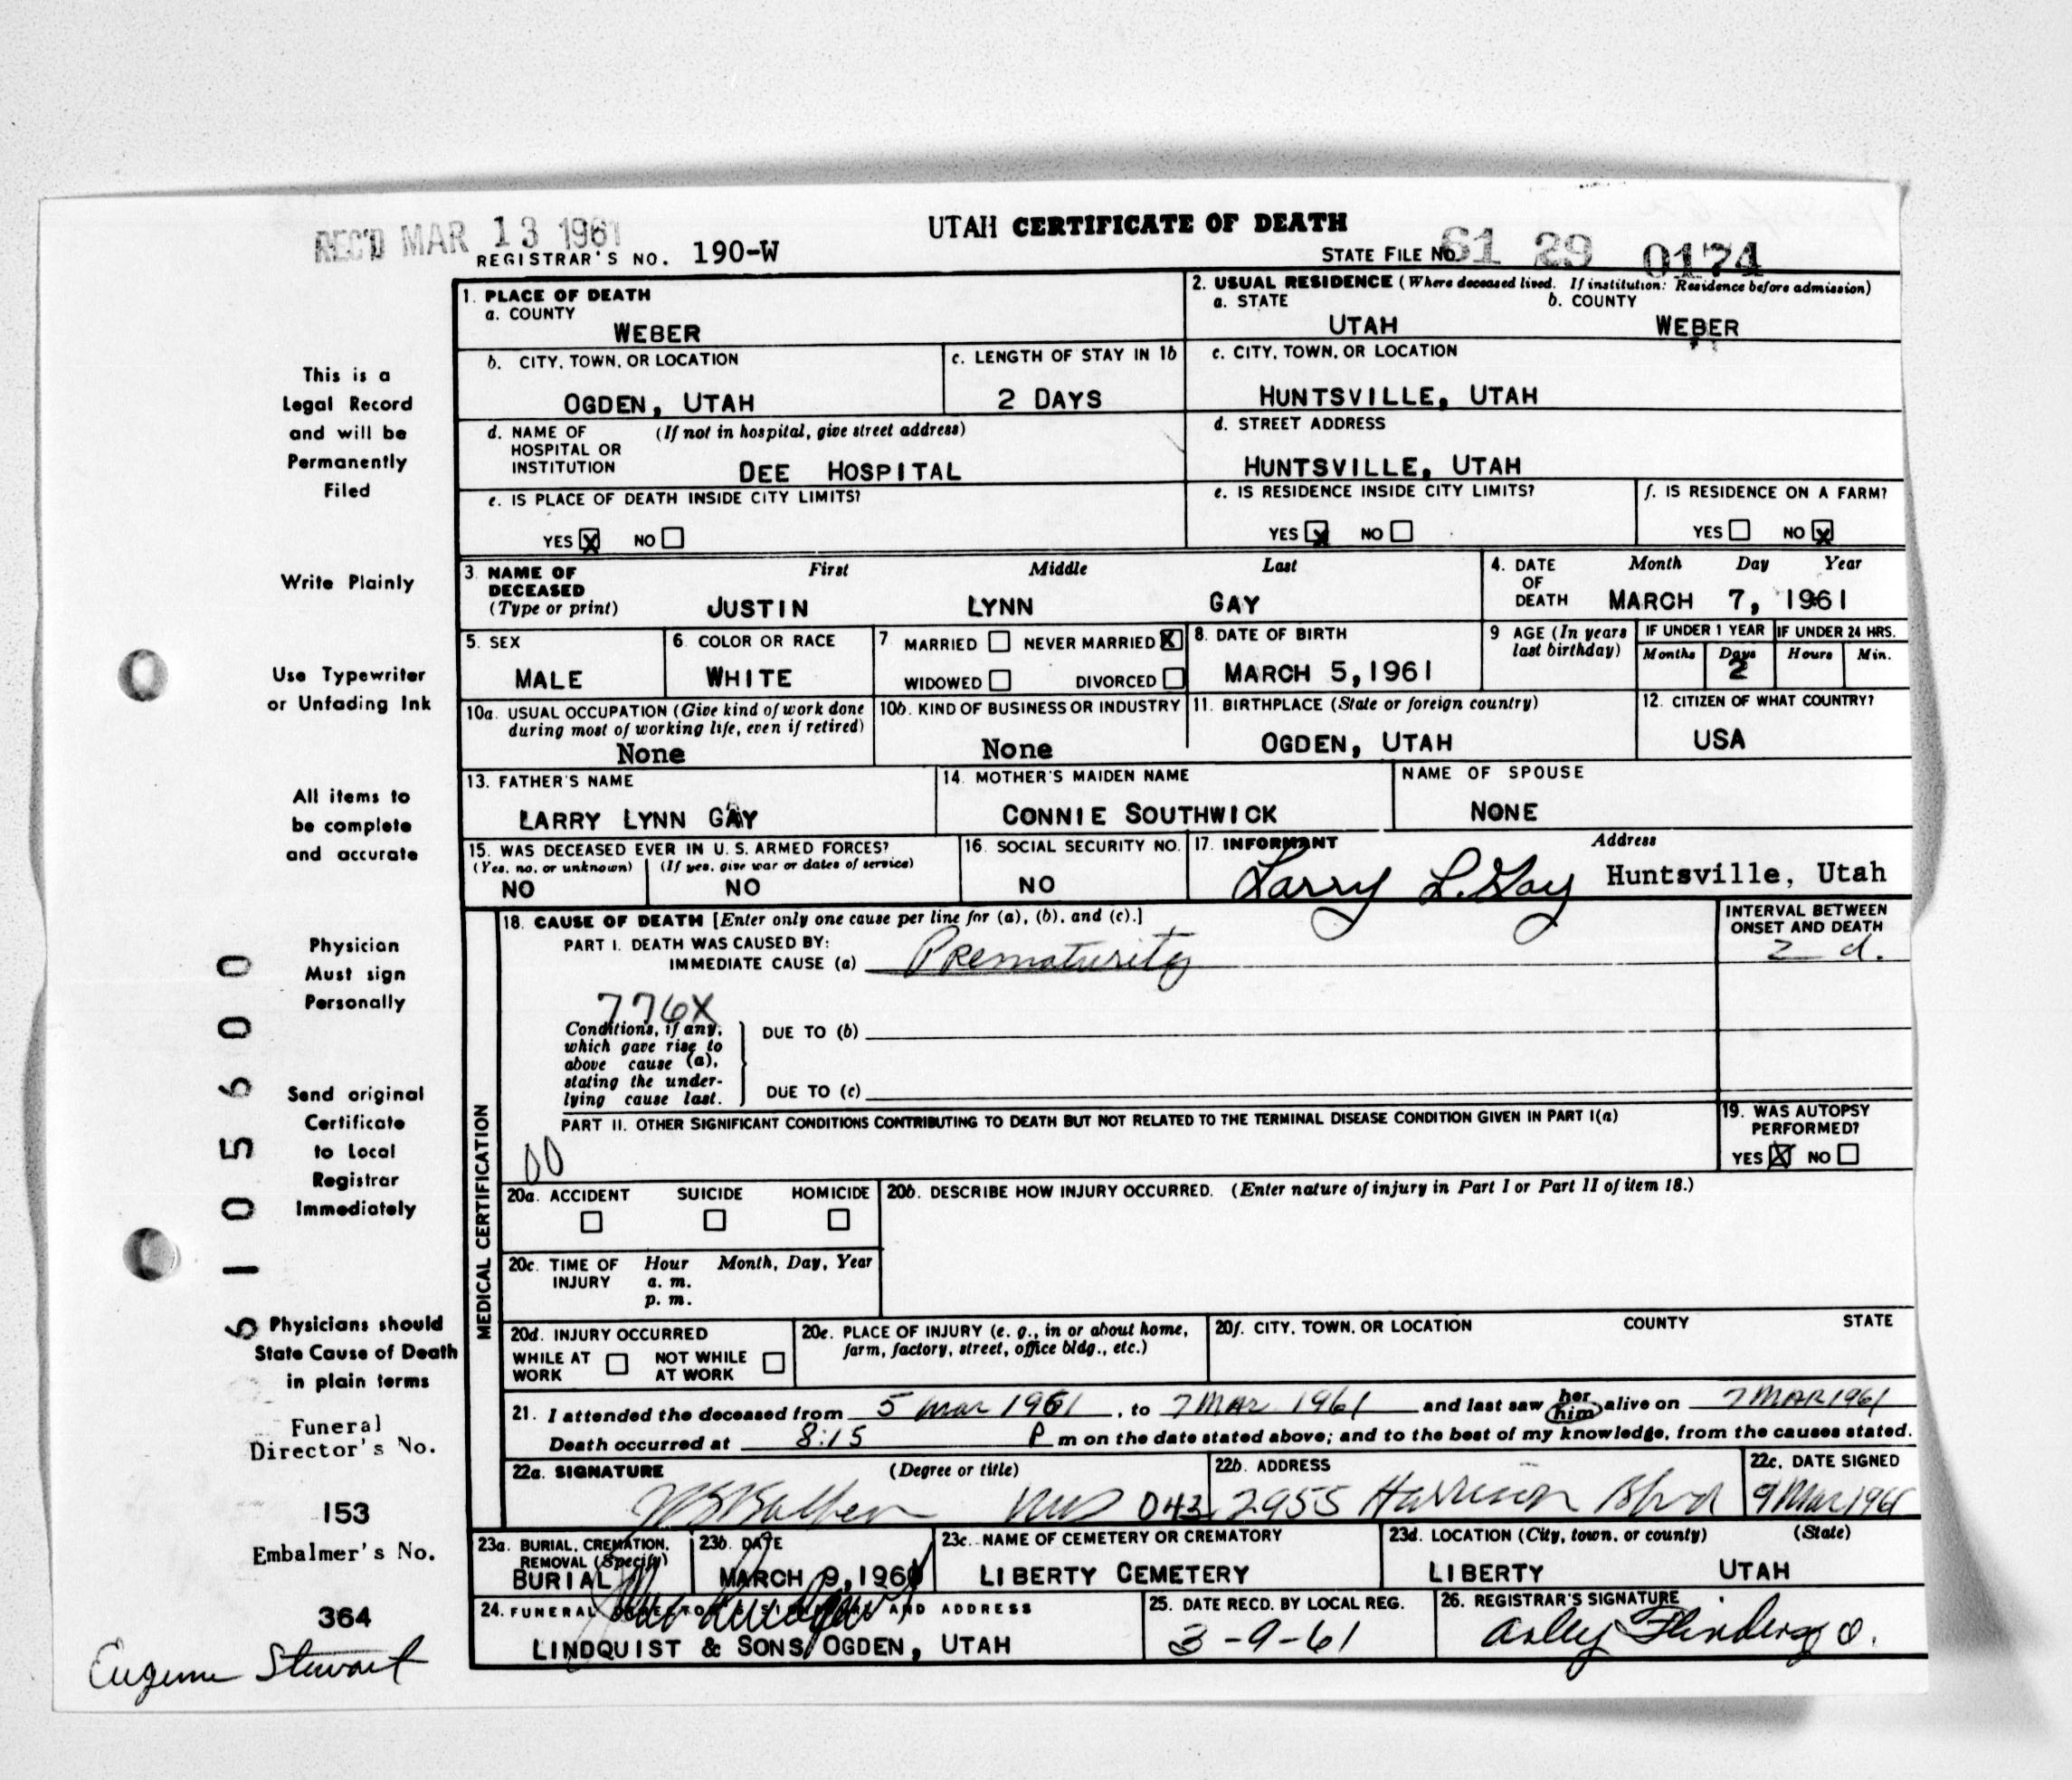 REC'D MAR 13 1961
UTAH CERTIFICATE OF DEATH
REGISTRAR'S NO. 190-W
STATE FILE NO. 61 29 0174
This is a
Legal Record
and will be
Permanently
Filed
Write Plainly
Use Typewriter
or Unfading Ink
All items to
be complete
and accurate
Physician
Must sign
Personally
Send original
Certificate
to Local
Registrar
Immediately
Physicians should
State Cause of Death
in plain terms
Funeral
Director's No.
153
Embalmer's No.
364
Eugene Stewart
6105600
1. PLACE OF DEATH
a. COUNTY
WEBER
2. USUAL RESIDENCE (Where deceased lived. If institution: Residence before admission)
a. STATE b. COUNTY
UTAH WEBER
b. CITY, TOWN, OR LOCATION
OGDEN, UTAH
c. LENGTH OF STAY IN 1b
2 DAYS
c. CITY, TOWN, OR LOCATION
HUNTSVILLE, UTAH
d. NAME OF (If not in hospital, give street address)
HOSPITAL OR
INSTITUTION DEE HOSPITAL
d. STREET ADDRESS
HUNTSVILLE, UTAH
e. IS PLACE OF DEATH INSIDE CITY LIMITS?
YES X NO
e. IS RESIDENCE INSIDE CITY LIMITS?
YES X NO
f. IS RESIDENCE ON A FARM?
YES NO X
3. NAME OF First Middle Last
DECEASED
(Type or print) JUSTIN LYNN GAY
4. DATE Month Day Year
OF
DEATH MARCH 7, 1961
5. SEX
MALE
6. COLOR OR RACE
WHITE
7. MARRIED NEVER MARRIED X
WIDOWED DIVORCED
8. DATE OF BIRTH
MARCH 5,1961
9 AGE (In years
last birthday)
IF UNDER 1 YEAR
Months Days
2
IF UNDER 24 HRS.
Hours Min.
10a. USUAL OCCUPATION (Give kind of work done
during most of working life, even if retired)
None
10b. KIND OF BUSINESS OR INDUSTRY
None
11. BIRTHPLACE (State or foreign country)
OGDEN, UTAH
12. CITIZEN OF WHAT COUNTRY?
USA
13. FATHER'S NAME
LARRY LYNN GAY
14. MOTHER'S MAIDEN NAME
CONNIE SOUTHWICK
NAME OF SPOUSE
NONE
15. WAS DECEASED EVER IN U. S. ARMED FORCES?
(Yes, no, or unknown) (If yes, give war or dates of service)
NO NO
16. SOCIAL SECURITY NO.
NO
17. INFORMANT Address
Larry L. Gay Huntsville, Utah
MEDICAL CERTIFICATION
18. CAUSE OF DEATH [Enter only one cause per line for (a), (b), and (c).]
PART I. DEATH WAS CAUSED BY:
IMMEDIATE CAUSE (a) Prematurity
INTERVAL BETWEEN
ONSET AND DEATH
2 d.
776X
Conditions, if any,
which gave rise to
above cause (a),
stating the under-
lying cause last.
DUE TO (b)
DUE TO (c)
PART II. OTHER SIGNIFICANT CONDITIONS CONTRIBUTING TO DEATH BUT NOT RELATED TO THE TERMINAL DISEASE CONDITION GIVEN IN PART I(a)
00
19. WAS AUTOPSY
PERFORMED?
YES X NO
20a. ACCIDENT SUICIDE HOMICIDE
20b. DESCRIBE HOW INJURY OCCURRED. (Enter nature of injury in Part I or Part II of item 18.)
20c. TIME OF Hour Month, Day, Year
INJURY a. m.
p. m.
20d. INJURY OCCURRED
WHILE AT NOT WHILE
WORK AT WORK
20e. PLACE OF INJURY (e. g., in or about home,
farm, factory, street, office bldg., etc.)
20f. CITY, TOWN, OR LOCATION COUNTY STATE
21. I attended the deceased from 5 Mar 1961, to 7 MAR 1961 and last saw her him alive on 7 MAR 1961
Death occurred at 8:15 P m on the date stated above; and to the best of my knowledge, from the causes stated.
22a. SIGNATURE (Degree or title)
MD 043
22b. ADDRESS
2955 Harrison Blvd
22c. DATE SIGNED
9 Mar 1961
23a. BURIAL, CREMATION,
REMOVAL (Specify)
BURIAL
23b. DATE
MARCH 9,1961
23c. NAME OF CEMETERY OR CREMATORY
LIBERTY CEMETERY
23d. LOCATION (City, town, or county) (State)
LIBERTY UTAH
24. FUNERAL DIRECTOR'S AND ADDRESS
LINDQUIST & SONS/OGDEN, UTAH
25. DATE RECD. BY LOCAL REG.
3-9-61
26. REGISTRAR'S SIGNATURE